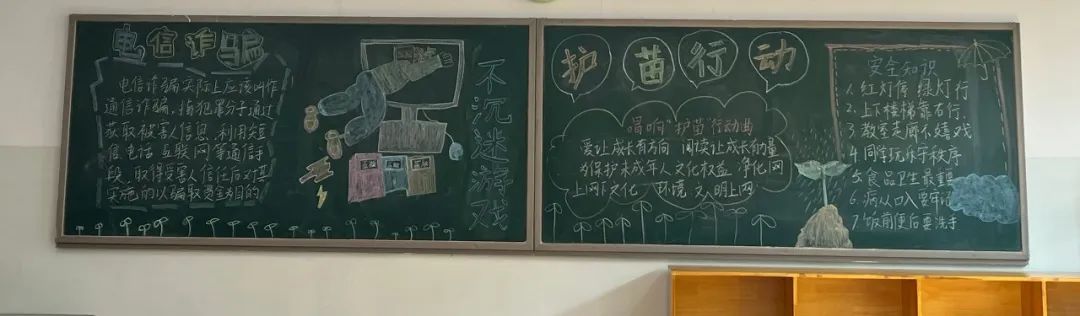 电信诈骗
电信诈骗实际上应该叫作
通信诈骗,指犯罪分子通过
获取被害人信息,利用短
信电话 互联网等通信手
段,取得受害人信任后对其
实施的以骗取资金为目的
不沉迷游戏
护苗行动
唱响“护苗”行动曲
爱让成长有方向 阅读让成长有力量
保护未成年人文化权益 净化网
上网下文化 环境 文明上网
安全知识
1. 红灯停 绿灯行
2. 上下楼梯靠右行
3. 教室走廊不嬉戏
4. 同学玩乐守秩序
5. 食品卫生最重要
6. 病从口入要牢记
7. 饭前便后要洗手